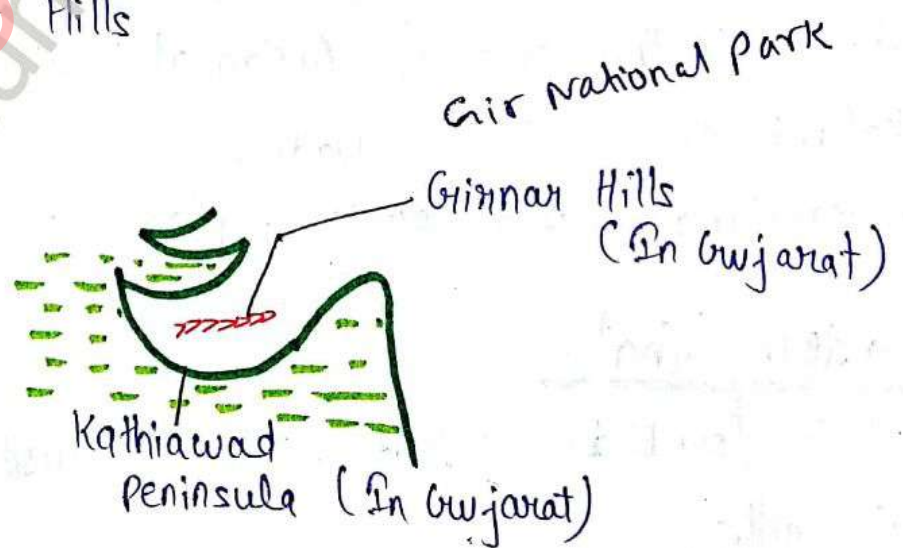 Hills
Gir National Park
Girnar Hills
(In Gujarat)
Kathiawad
Peninsula (In Gujarat)